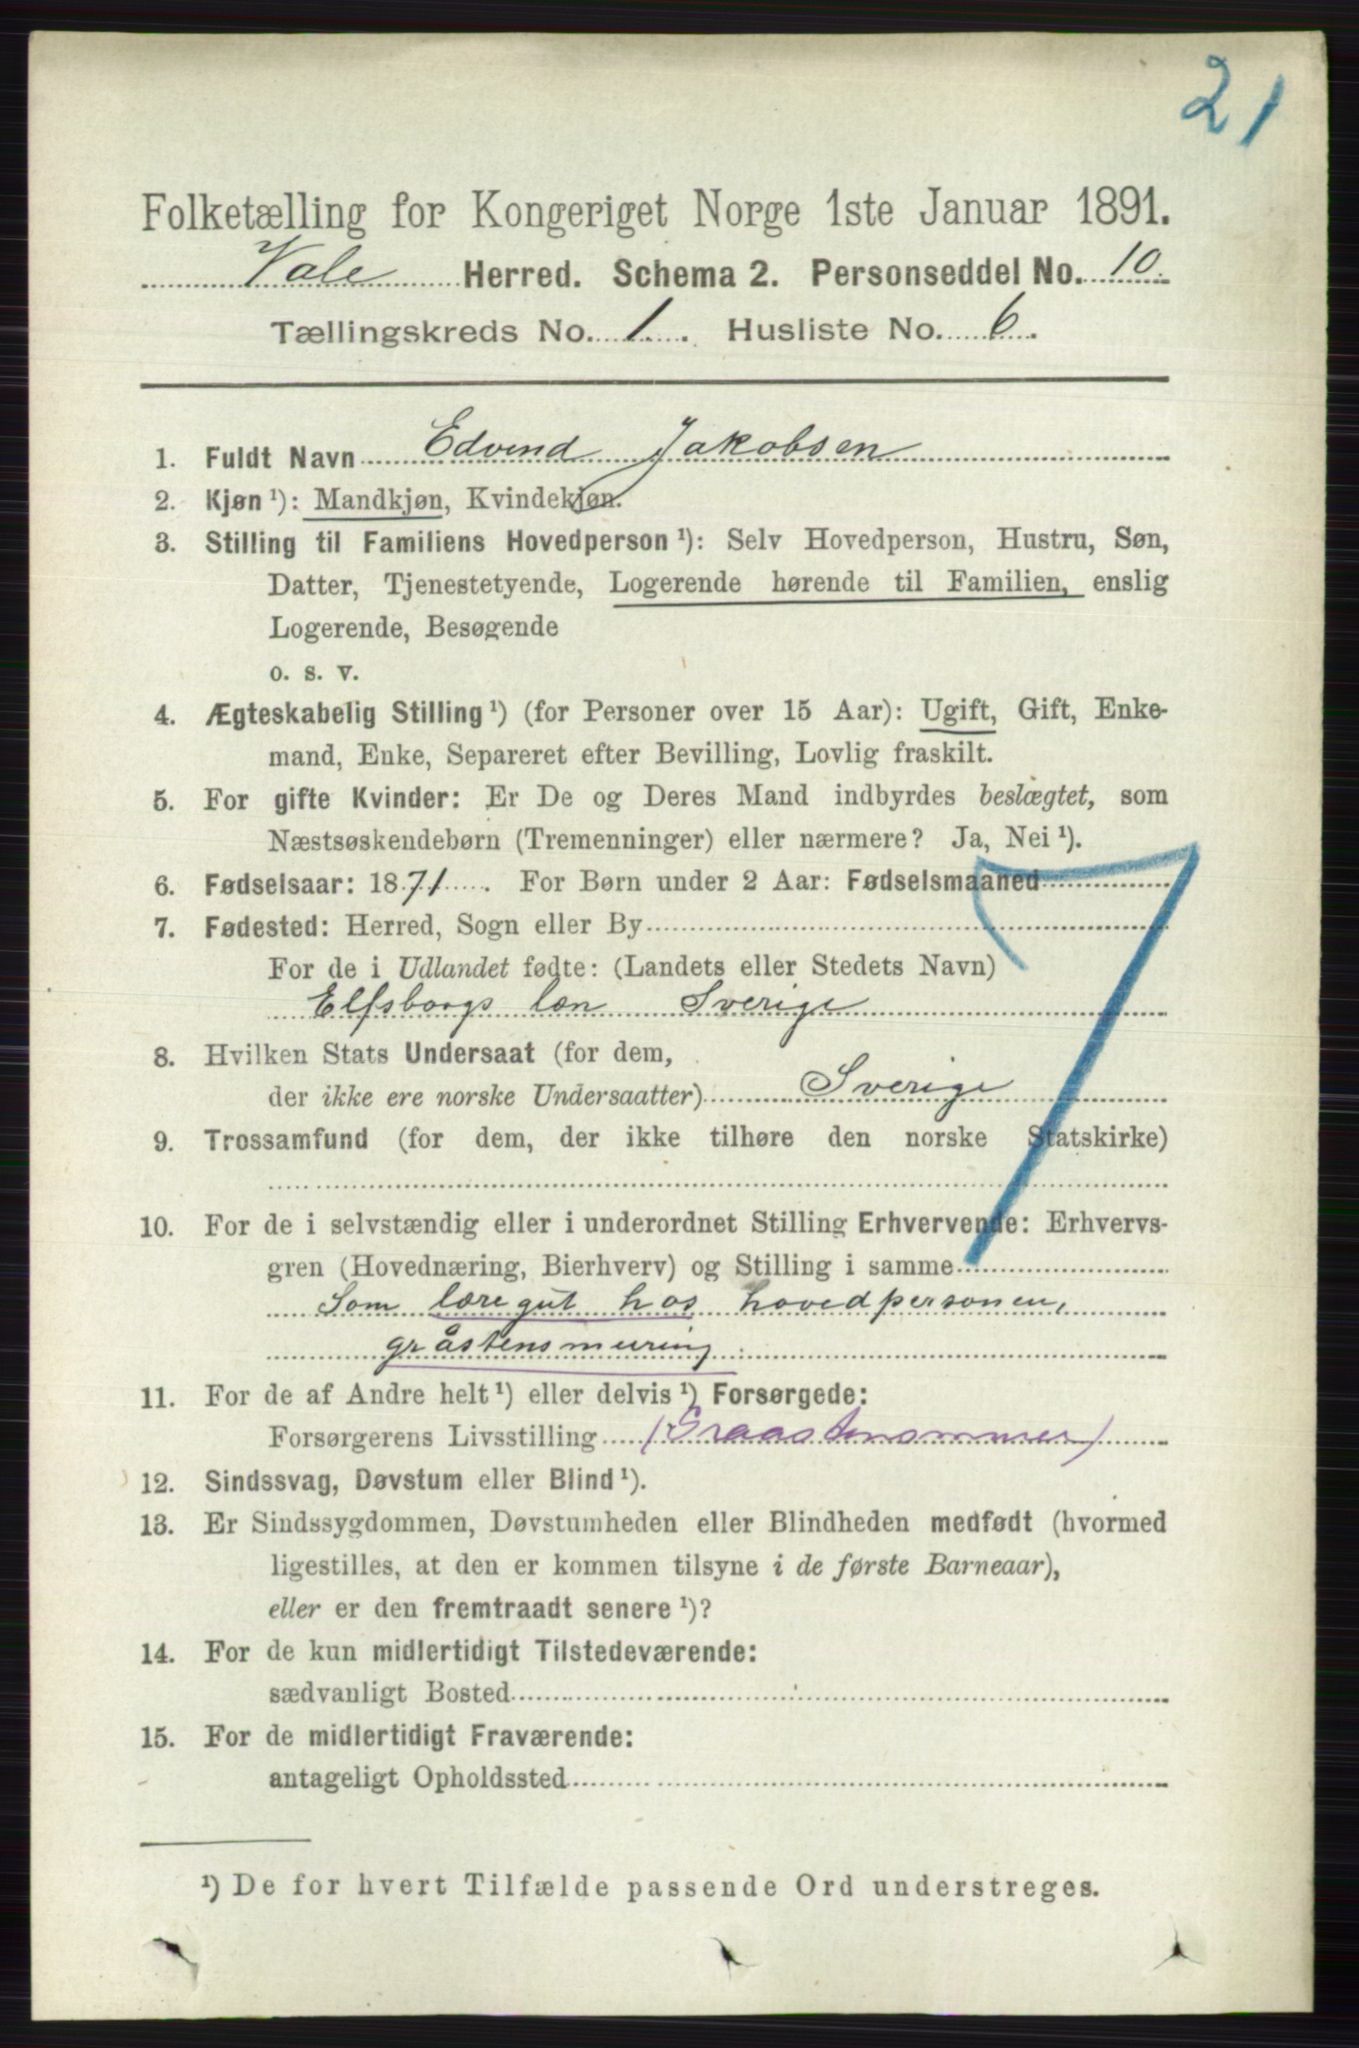 21
Folketælling for Kongeriget Norge 1ste Januar 1891.
Vale Herred. Schema 2. Personseddel No. 10.
Tællingskreds No. 1. Husliste No. 6.
1. Fuldt Navn Edvend Jakobsen
2. Kjøn ¹): Mandkjøn, Kvindekjøn.
3. Stilling til Familiens Hovedperson ¹): Selv Hovedperson, Hustru, Søn,
Datter, Tjenestetyende, Logerende hørende til Familien, enslig
Logerende, Besøgende
o. s. v.
4. Ægteskabelig Stilling ¹) (for Personer over 15 Aar): Ugift, Gift, Enke-
mand, Enke, Separeret efter Bevilling, Lovlig fraskilt.
5. For gifte Kvinder: Er De og Deres Mand indbyrdes beslægtet, som
Næstsøskendebørn (Tremenninger) eller nærmere? Ja, Nei ¹).
6. Fødselsaar: 1871. For Børn under 2 Aar: Fødselsmaaned
7. Fødested: Herred, Sogn eller By
For de i Udlandet fødte: (Landets eller Stedets Navn)
Elfsborgs læn Sverige
7
8. Hvilken Stats Undersaat (for dem,
der ikke ere norske Undersaatter) Sverige
9. Trossamfund (for dem, der ikke tilhøre den norske Statskirke)
10. For de i selvstændig eller i underordnet Stilling Erhvervende: Erhvervs-
gren (Hovednæring, Bierhverv) og Stilling i samme
Som læregut hos hovedpersonen,
gråstensmuring.
11. For de af Andre helt ¹) eller delvis ¹) Forsørgede:
Forsørgerens Livsstilling (Graastensmurer)
12. Sindssvag, Døvstum eller Blind ¹).
13. Er Sindssygdommen, Døvstumheden eller Blindheden medfødt (hvormed
ligestilles, at den er kommen tilsyne i de første Barneaar),
eller er den fremtraadt senere ¹)?
14. For de kun midlertidigt Tilstedeværende:
sædvanligt Bosted
15. For de midlertidigt Fraværende:
antageligt Opholdssted
¹) De for hvert Tilfælde passende Ord understreges.